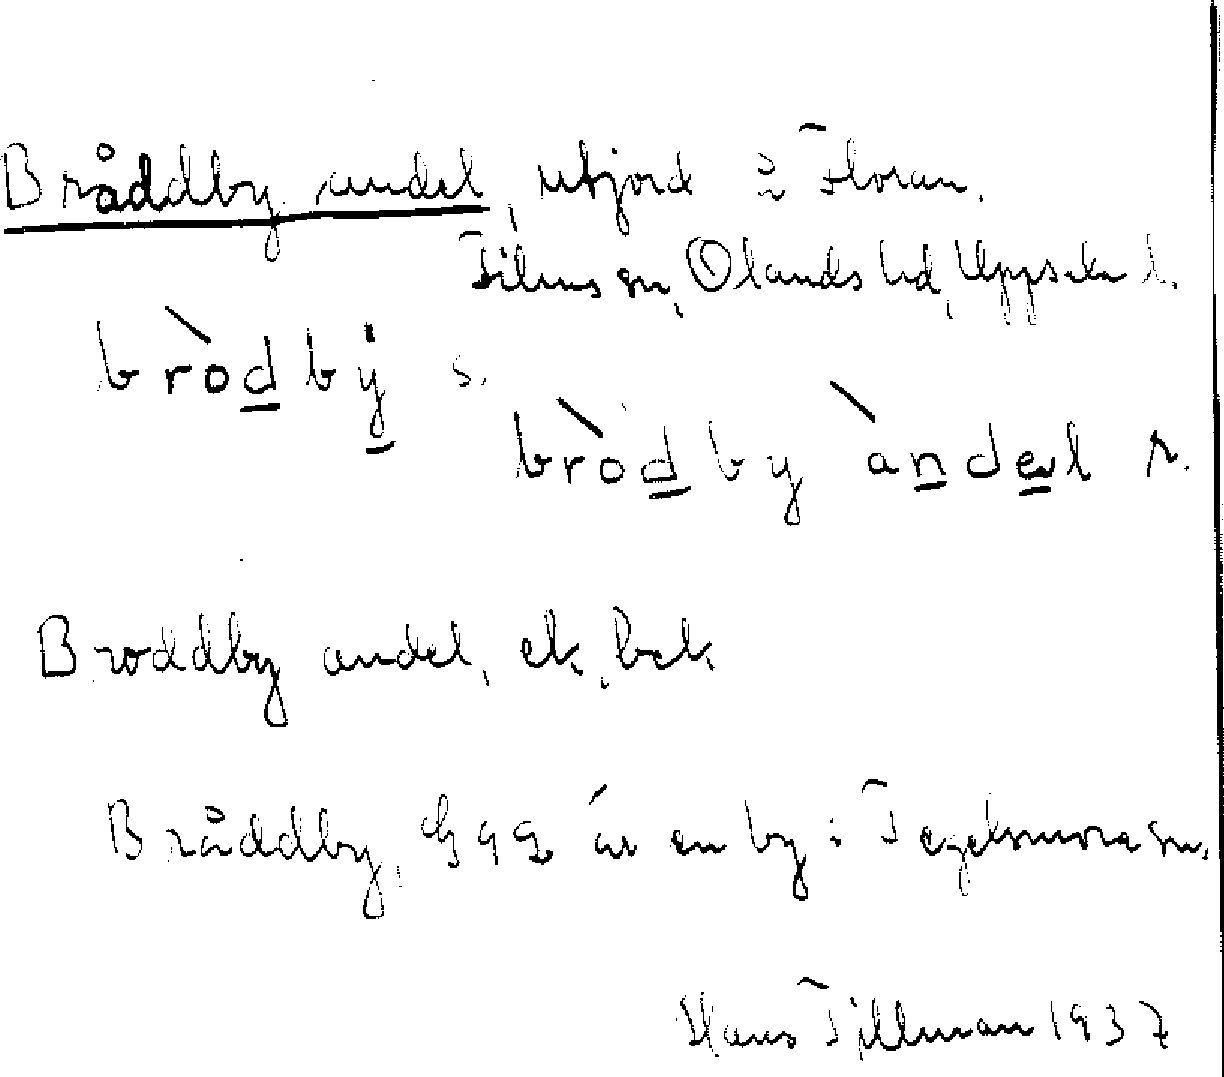 Bråddby andel, utjord i Floran,
Films sn, Olands hd, Uppsala l.
bròdby s.
bròdby àndel s.
Broddby andel, ek. bck
Bråddby, G92 är en by i Tegelsmora sn.
Hans Tillman 1937